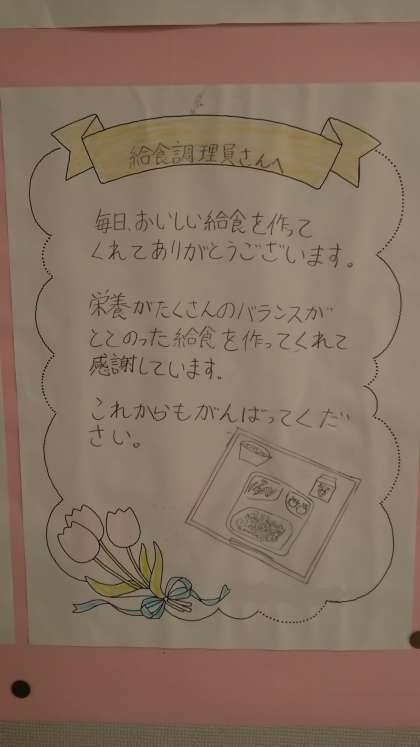 給食調理員さんへ
毎日、おいしい給食を作って
くれてありがとうございます。
栄養がたくさんのバランスが
ととのった給食を作ってくれて
感謝しています。
これからもがんばってくだ
さい。